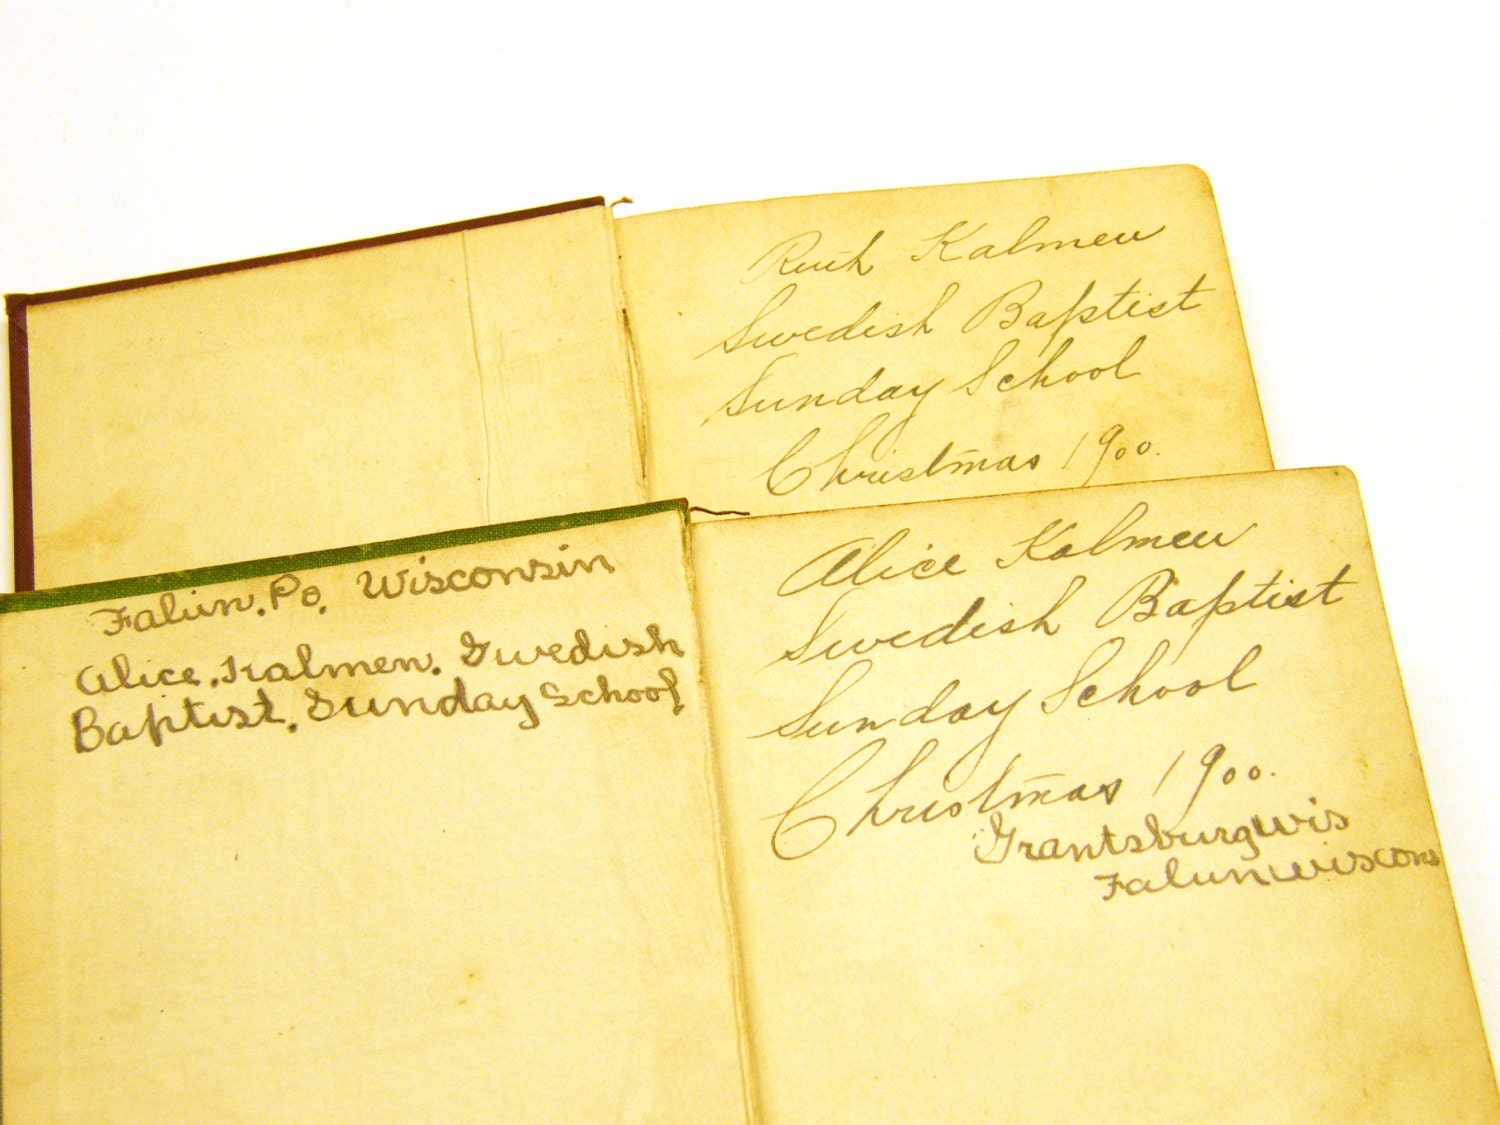 Ruth Kalmen
Swedish Baptist
Sunday School
Christmas 1900.
Falun. Po. Wisconsin
Alice. Kalmen. Swedish
Baptist. Sunday School.
Alice Kalmen
Swedish Baptist
Sunday School
Christmas 1900.
Grantsburg Wis
Falun Wiscons